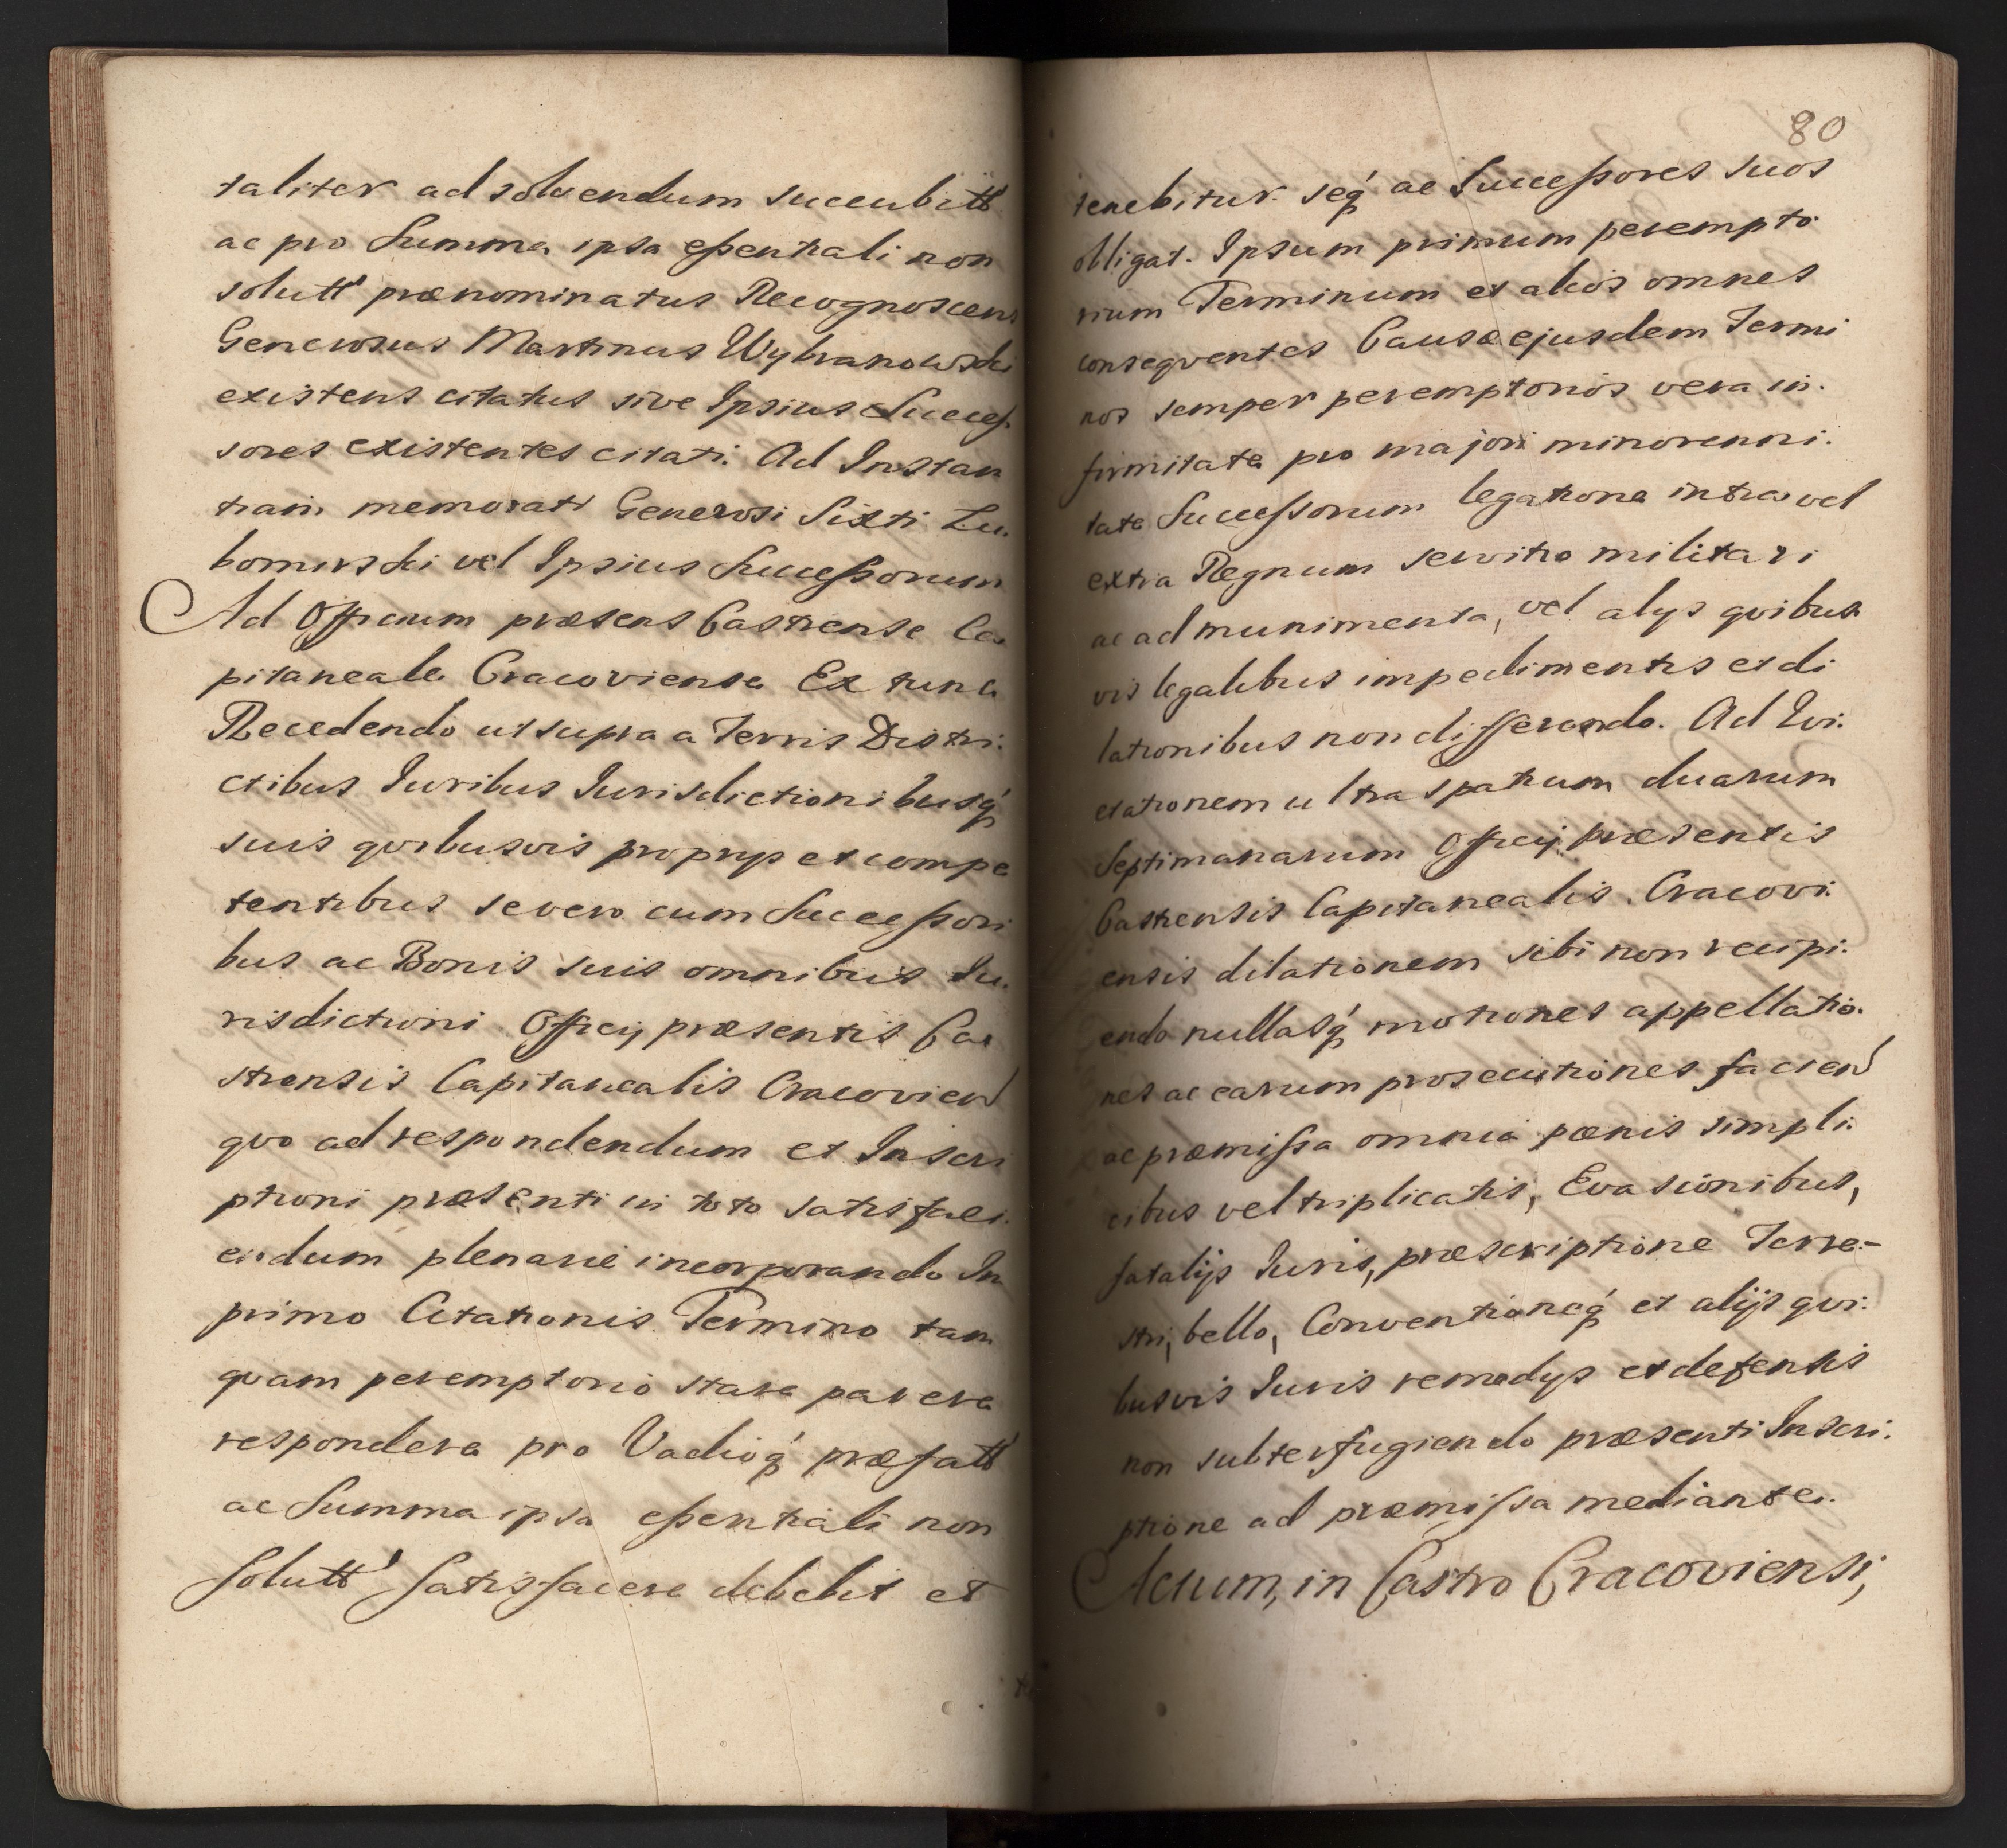 taliter ad solvendum succubitt
ac pro Summa ipsa eßentiali non
solutt prænominatus Recognoscens
Generosus Martinus Wybranowski
existens citatus sive Ipsius Succes
sores existentes citati. Ad Instan
tiam memorati Generosi Sixti Lu.
bomirski vel Ipsius Succeſsorum
Ad Officium præsens Castrense Ca
pitaneale Cracoviense Ex tunc
Recedendo ut supra a Terris Distri.
ctibus Iuribus Iurisdictionibusq́
suis qvibusvis proprys et compe
tentibus se vero cum Succeſsori
bus ac Bonis suis omnibus Iu.
risdictioni Officij præsentis Ca
strensis Capitanealis Cracovien
qvo ad respondendum et Inscri
ptioni præsenti in toto satisfaci.
endum plenarie incorporando In
primo Citationis Termino tam
qvam peremptorio stare parere
respondere pro Vadioq́ præfatt
ac Summa ipsa eßentiali non
Solutt Satisfacere debebit et
80
tenebitur seq́ ac Succeſsores suos
obligat. Ipsum primum perempto
rium Terminum et alios omnes
conseqventes Causæ ejusdem Termi
nos semper peremptorios vera in.
firmitate pro majori minorenni.
tate Succeſsorum legatione intra vel
extra Regnum servitio militari
ac ad munimenta, vel alys qvibus
vis legalibus impedimentis et di
lationibus non differendo. Ad Evi.
ctationem ultra spatium duarum
Septimanarum Officij præsentis
Castrensis Capitanealis Cracovi.
ensis dilationem sibi non recipi.
endo nullasq́ motiones appellatio.
nes ac earum prosecutiones facien
ac præmiſsa omnia pœnis simpli.
cibus vel triplicatis, Evasionibus,
fatalijs Iuris, præscriptione Terre-
stri, bello, Conventioneq́ et alijs qvi.
busvis Iuris remedys et defensis
non subterfugiendo præsenti Inscri.
ptione ad præmiſsa mediante.
Actum, in Castro Cracoviensi,